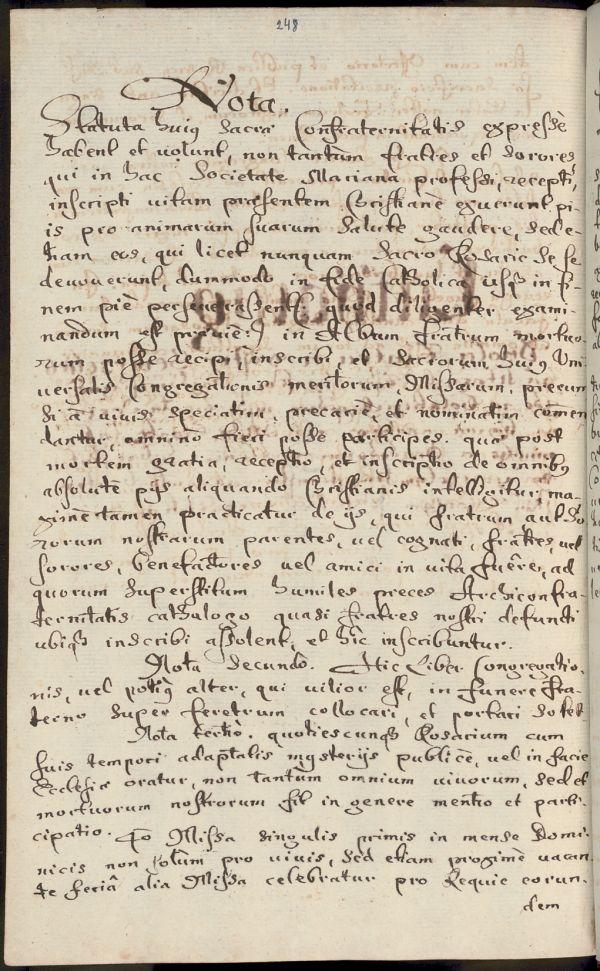 248
Nota.
Statuta huiq Sacrae Confraternitatis expressè
habent et volunt, non tantùm fratres et Sorores,
qui in hac Societate Mariana professi, recepti,
inscripti vitam praesentem Christianè exuerunt pi-
is pro animarum suarum Salute gaudere, sed e-
tiam eos, qui licet nunquam Sacro Rosario se se
devoverunt, dummodo in fide Catholica usq in fi-
nem piè perseverassent (: quod diligenter exami-
nandum est praeviè :) in Album fratrum mortuo-
rum posse recipi, inscribi, et Sacrorum huiq Uni
versalis Congregationis meritorum, Missarum, precum
si a vivis speciatim, precariè, et nominatim comen
dantur, omnino fieri posse participes. quae post
mortem gratia, receptio, et inscriptio de omnibq
absolutè pijs aliquando Christianis intelligitur, ma-
ximè tamen practicatur de ijs, qui fratrum aut So
rorum nostrarum parentes, vel cognati, fratres, vel
sorores, benefactores vel amici in vita fuêre, ad
quorum Superstitum humiles preces Archiconfra-
ternitatis cathalogo quasi fratres nostri defuncti
ubiq inscribi assolent, et hîc inscribuntur.
Nota Secundò. Hic Liber Congregatio-
nis, vel potiq alter, qui vilior est, in funere fra-
terno Super feretrum collocari, et portari solet
Nota tertiò. quotiescunq Rosarium cum
suis tempori adaptatis mysterijs publicè, vel in facie
Ecclesiae oratur, non tantùm omnium vivorum, sed et
mortuorum nostrorum fit in genere mentio et parti-
cipatio. Missa singulis primis in mense Domi-
nicis non solùm pro vivis, sed etiam proximè vacan
te feriâ alia Missa celebratur pro Requie eorun-
dem